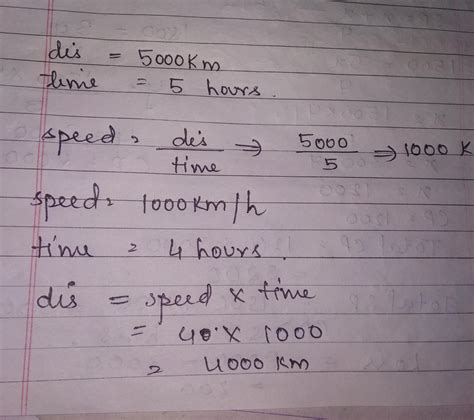 dis = 5000Km
time = 5 hours.
speed = dis/time → 5000/5 → 1000 K
speed = 1000Km/h
time = 4 hours.
dis = speed x time
= 40 x 1000
= 4000 KM